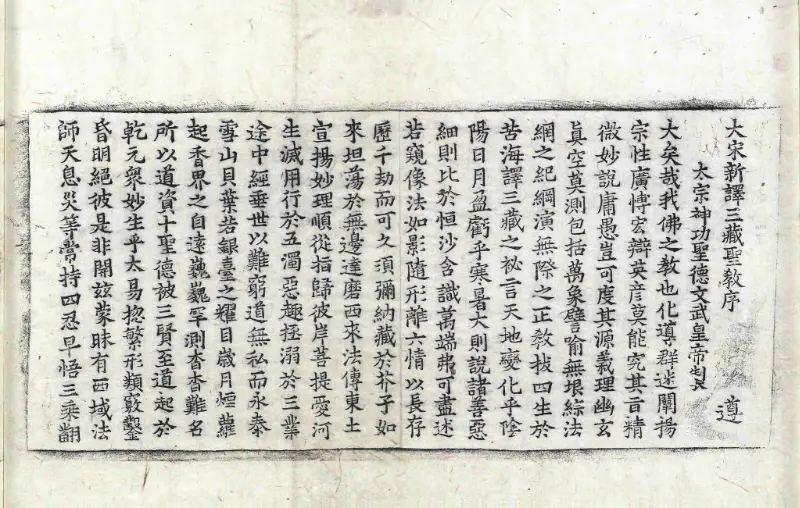 大宋新譯三藏聖教序 遵
太宗神功聖德文武皇帝製
大矣哉我佛之教也化導群迷闡揚
宗性廣博宏辯英彥莫能究其旨精
微妙說庸愚豈可度其源義理幽玄
真空莫測包括萬象譬喻無垠綜法
網之紀綱演無際之正教拔四生於
苦海譯三藏之祕言天地變化乎陰
陽日月盈虧乎寒暑大則說諸善惡
細則比於恒沙含識萬端弗可盡述
若窺像法如影隨形離六情以長存
歷千劫而可久須彌納藏於芥子如
來坦蕩於無邊達磨西來法傳東土
宣揚妙理順從指歸彼岸菩提愛河
生滅用行於五濁惡趣拯溺於三業
途中經垂世以難窮道無私而永泰
雪山貝葉若銀臺之耀目歲月煙蘿
起香界之自遠巍巍罕測杳杳難名
所以道資十聖德被三賢至道起於
乾元眾妙生乎太易揔繁形類竅鑿
昏明絕彼是非開茲蒙昧有西域法
師天息災等常持四忍早悟三乘翻